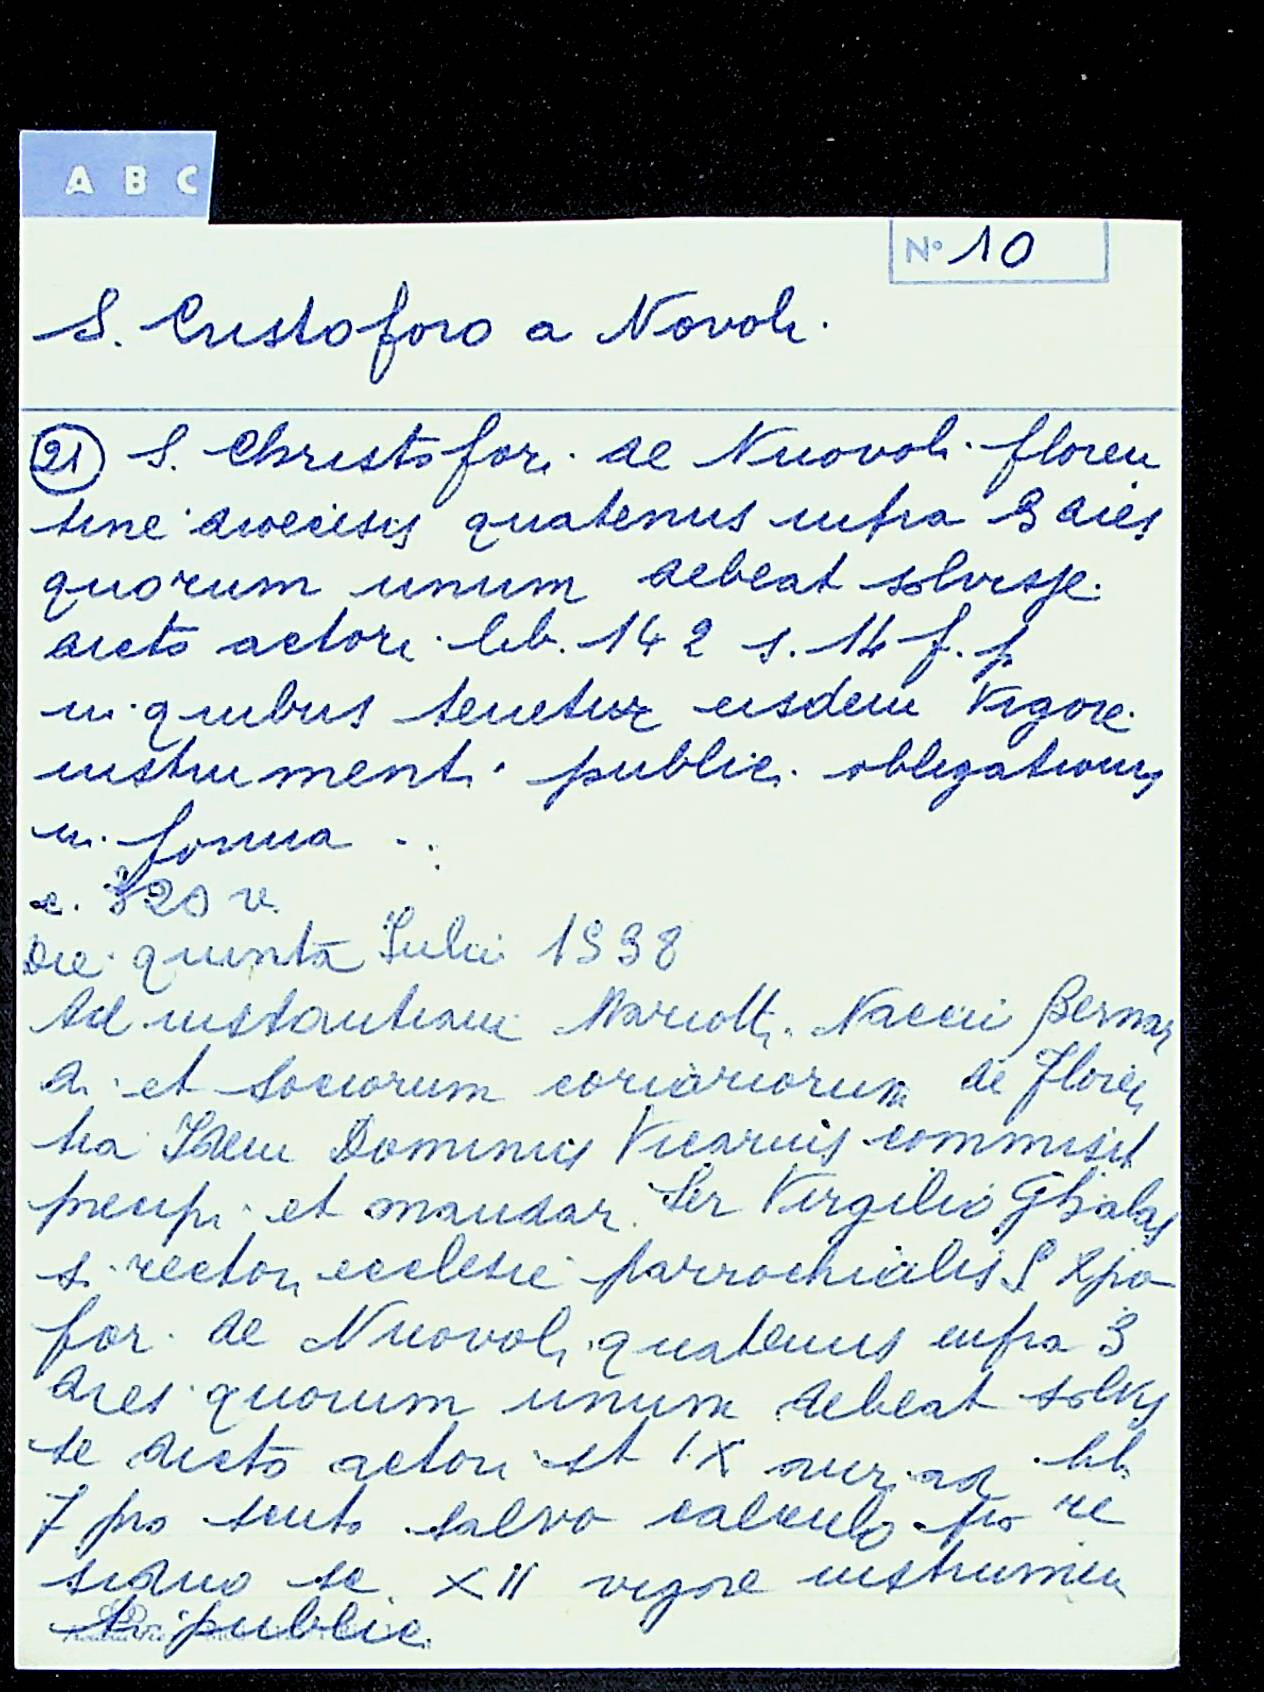 A B C
N° 10
S. Cristoforo a Novoli
21 S. Christofori de Nuovoli floren
tine diocecisis quatenus infra 3 dies
quorum unum debeat solvisse
dicto actori lib. 142 s. 14 f. p
in quibus tenetur eisdem vigore
instrumenti publici obligationis
in forma ..
c. 320 v.
Die quinta Julii 1538
Ad instantiam Mariotti Naccii Bernar
di et sociorum coriariorum de Floren
tia Idem Dominus Vicarius commisit
precipi et mandari Ser Virgilio
s. rectori ecclesie parrochialis S Xpo
fori de Nuovoli quatenus infra 3
dies quorum unum debeat solvis
se dicto actori IX auri ad lib.
7 pro scuto salvo calculo pro re
siduo sc. XII vigore instrumen
ti publici